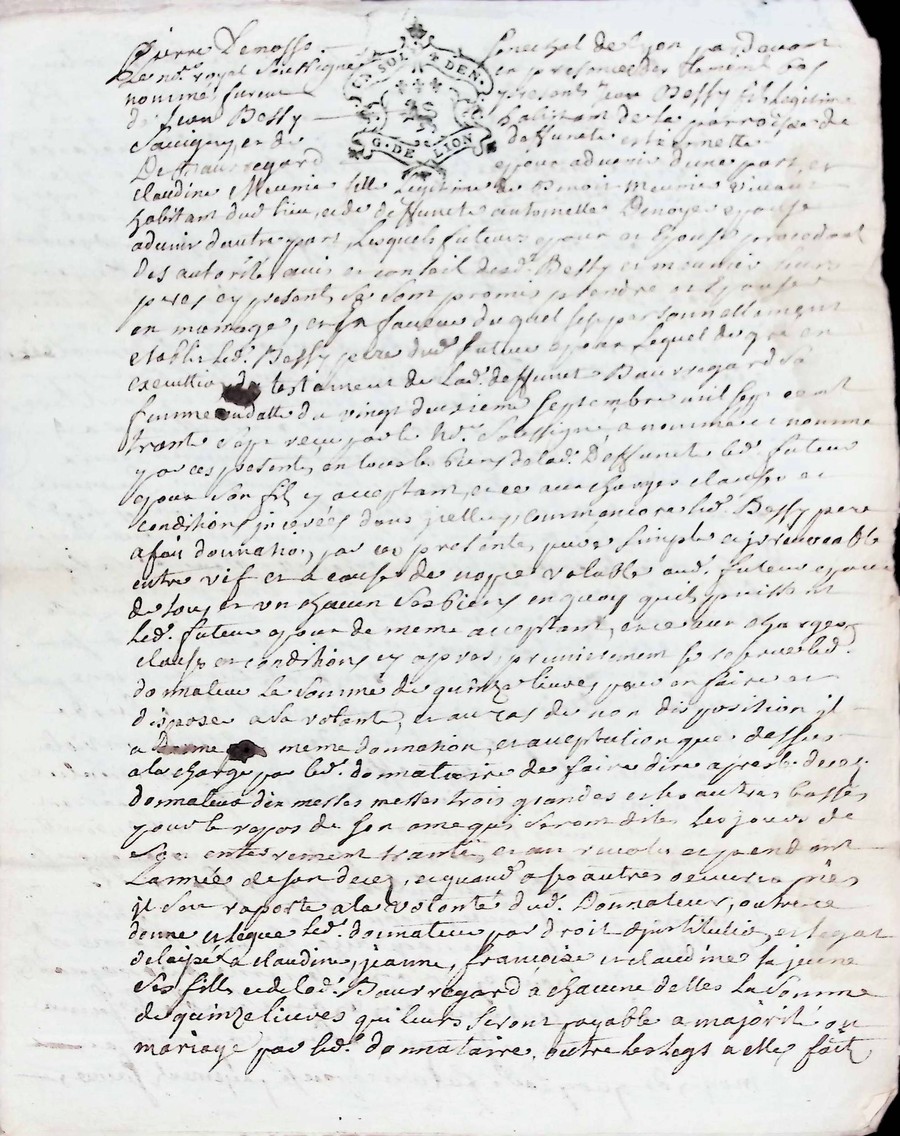 Pierre Denosse senechal de Lyon par devant
Le no.re royal soussigne et presence des
nomme furent presents Jean Bessy fils legitime
de Jean Bessy habitant de la parroisse de
Savigny, et de deffuncte
De Beauregard epoux advenir d'une part, et
claudine Meunie fille legitime de Benoit Meunie vivant
habitant dud. lieu, et de deffuncte antoinette Denoyer epouse
advenir d'autre part, Lesquels futeurs epoux et Epouse procedant
des autorité avis et conseil desd.t Bessy et meunier leurs
peres cy presents se sont promis prendre et Epouser
en mariage, et En faveur duquel s'est personnellement
etabli led.t Bessy pere dud. futeur epoux Lequel de gre en
execution du testament de Lad.t deffuncte Beauregard sa
femme en datte du vingt deuxieme septembre mil sept cent
trante sept recu par le no.re soussigne, a nomme et nomme
par ces presentes, en tous les biens de lad.t Deffuncte led.t futeur
epoux son fil cy acceptant, et ce aux charges clauses et
conditions inserées dans icelluy, comme encore led.t Bessy pere
a fait donnation, par ces presentes, pure simple et irrevocable
entre vif et a cause de nopce valable aud.t futeur epoux
de tous et un chacun ses biens en quoy quils puissent
led.t futeur epoux de meme acceptant, et ce aux charges
clauses et conditions cy apres, premierement se reserve led.t
donnateur La somme de quinze livres pour en faire et
disposer a sa volonté, et au cas de non disposition il
a meme donnation, et acceptation que dessus
a la charge par led.t donnataire de faire dire apres le deces
donnateur dix messes messes trois grandes et les autres basses
pour le repos de son ame qui seront dites les jours de
son enterrement et pendant
L'année de son deces, et quand aux autres oeuvres pies
il s'en raporte a la volonté dud.t Donnateur, outre ce
donne et legue led.t donnateur par droit d'institution, et legat
delaissé a claudine, jeanne, françoise et claudine la jeune
ses filles et de lad.t Beauregard à chacune delles La somme
de quinze livres qui leurs seront payable a majorité ou
mariage par led.t donnataire, outre les legs a elles fait
EN SOL T DEN
G. DE LION